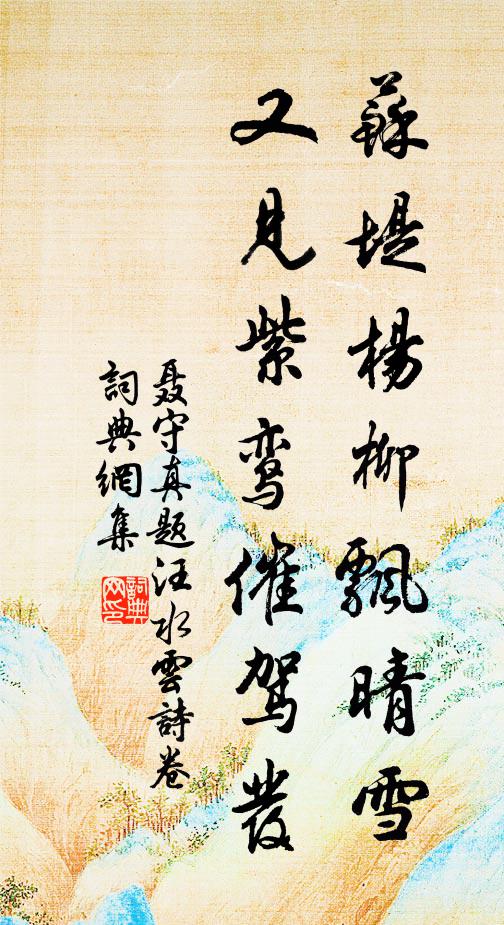 蘇堤楊柳飄晴雪
又見紫鸾催駕發
聂守真题汪水雲詩卷
詞典網集
詞典
网印